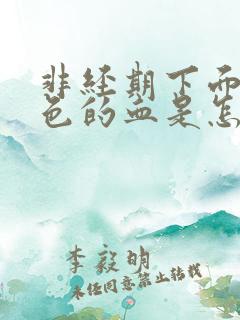 非经期下面
色的血是怎
李毅明
未经同意禁止转载